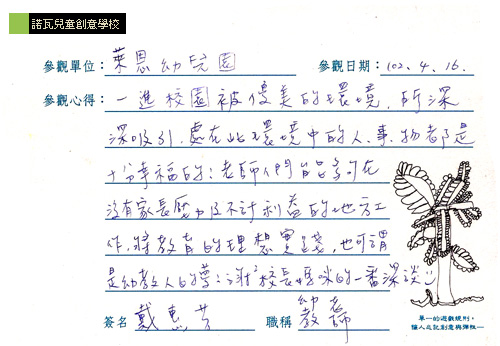 諾瓦兒童創意學校
參觀單位：萊恩幼兒園 參觀日期：102. 4. 16.
參觀心得：一進校園被優美的環境，所深
深吸引，處在此環境中的人、事、物都是
十分幸福的；老師們皆可在
沒有家長壓力及不計利益的地方工
作，將教育的理想實踐，也可謂
是幼教人的夢；謝謝校長媽咪的一番深談
簽名 戴惠芳 職稱 幼教老師
單一的遊戲規則，
讓人忘記創意與彈性—